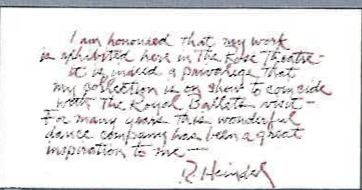 I am honoured that my work
is exhibited here in The Rose Theatre –
it is indeed a privilege that
my collection is on show to coincide
with The Royal Ballets visit –
For many years this wonderful
dance company has been a great
inspiration to me —
R. Heindel